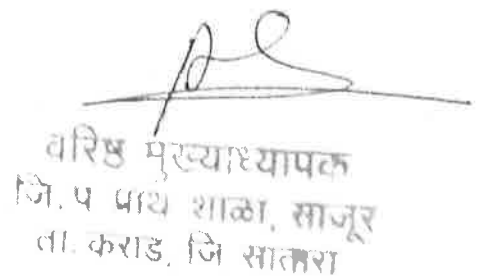 वरिष्ठ मुख्याध्यापक
जि. प प्राथ शाळा, साजूर
ता. कराड, जि सातारा